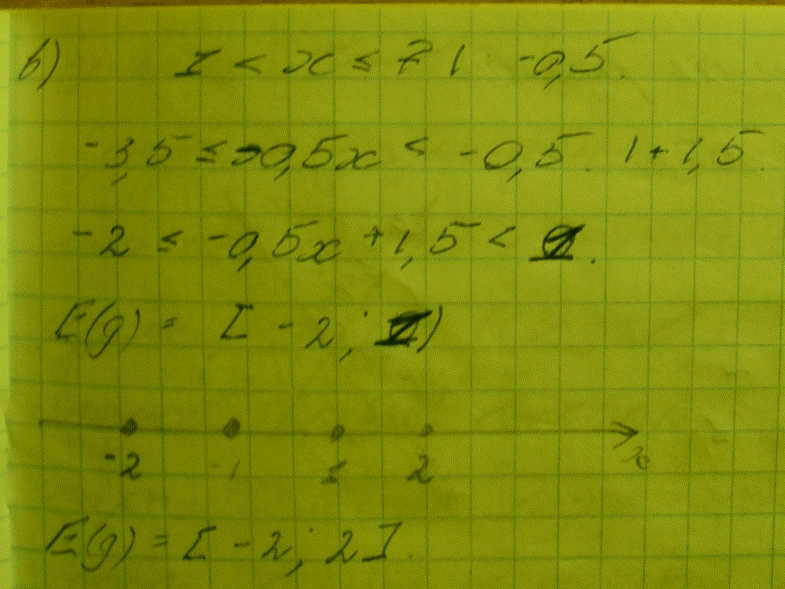 б) 1 < x ≤ 7 | · -0,5.
-3,5 ≤ -0,5x < -0,5. | + 1,5.
-2 ≤ -0,5x + 1,5 < .
E(g) = [ -2; )
-2 -1 1 2 x
E(g) = [ -2; 2 ]